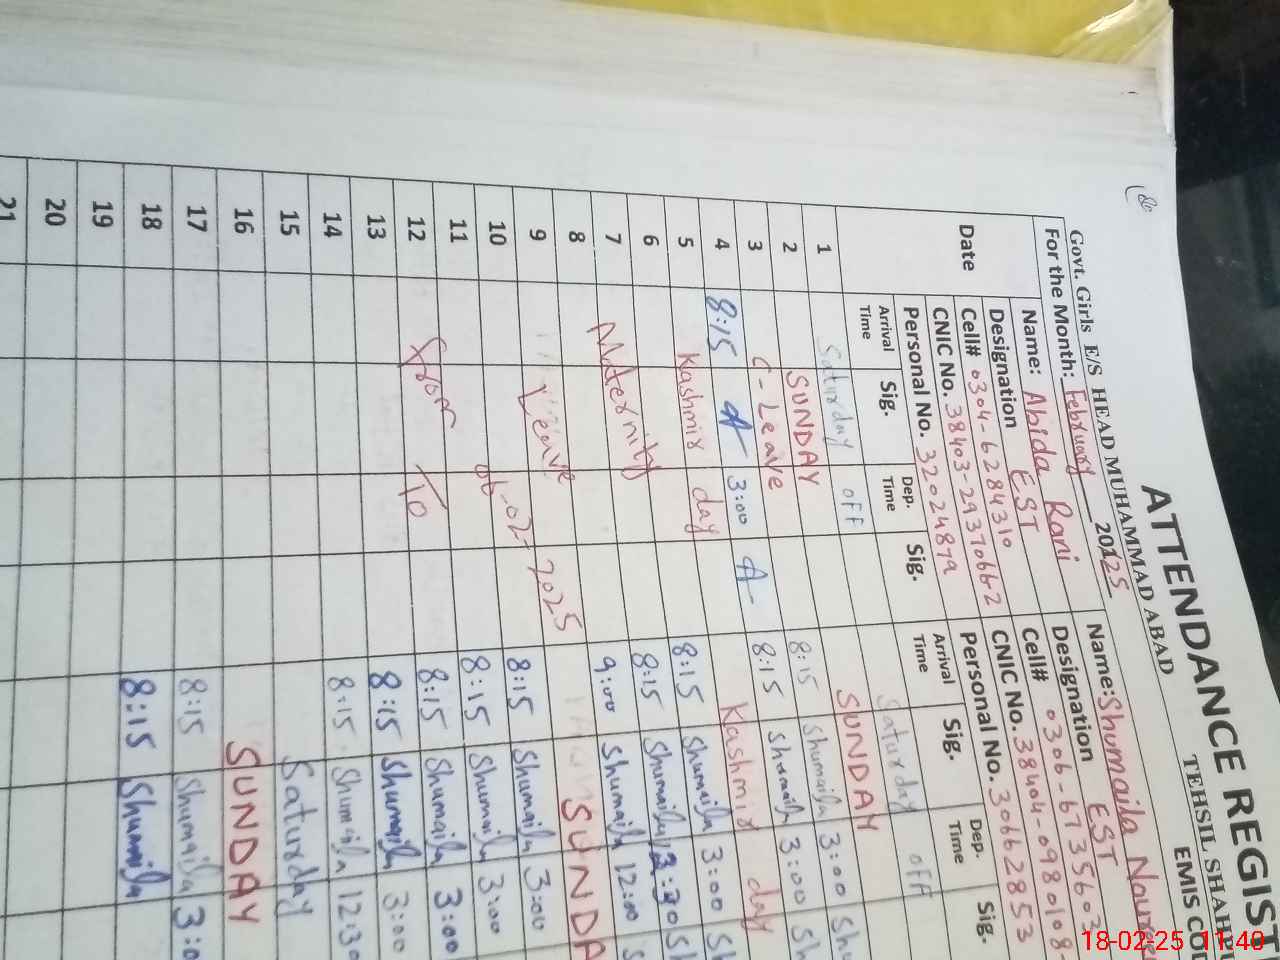 ATTENDANCE REGIST
Govt. Girls E/S HEAD MUHAMMAD ABAD TEHSIL SHAHPU
For the Month: February 20125 EMIS CO
Date
Name: Abida Rani
Designation EST
Cell# 0304-6284310
CNIC No. 38403-2937066-2
Personal No. 32024879
Arrival Time Sig. Dep. Time Sig.
Name: Shumaila
Designation EST
Cell# 0306-6735602
CNIC No. 38404-0980108-
Personal No. 30662853
Arrival Time Sig. Dep. Time Sig.
1 Saturday off Saturday off
2 SUNDAY SUNDAY
3 C-Leave 8:15 Shumaila 3:00 Shu
4 8:15 A 3:00 A 8:15 Shumaila 3:00 Sh
5 Kashmir day Kashmir day
6 8:15 Shumaila 3:00 Sh
7 Maternity 8:15 Shumaila 3:30 Sh
8 9:00 Shumaila 12:00 S
9 Leave SUNDA
10 06-02-2025 8:15 Shumaila 3:00
11 8:15 Shumaila 3:00
12 From To 8:15 Shumaila 3:00
13 8:15 Shumaila 3:00
14 8:15 Shumaila 12:30
15 Saturday
16 SUNDAY
17 8:15 Shumaila 3:0
18 8:15 Shumaila
19
20
21
18-02-25 11:40